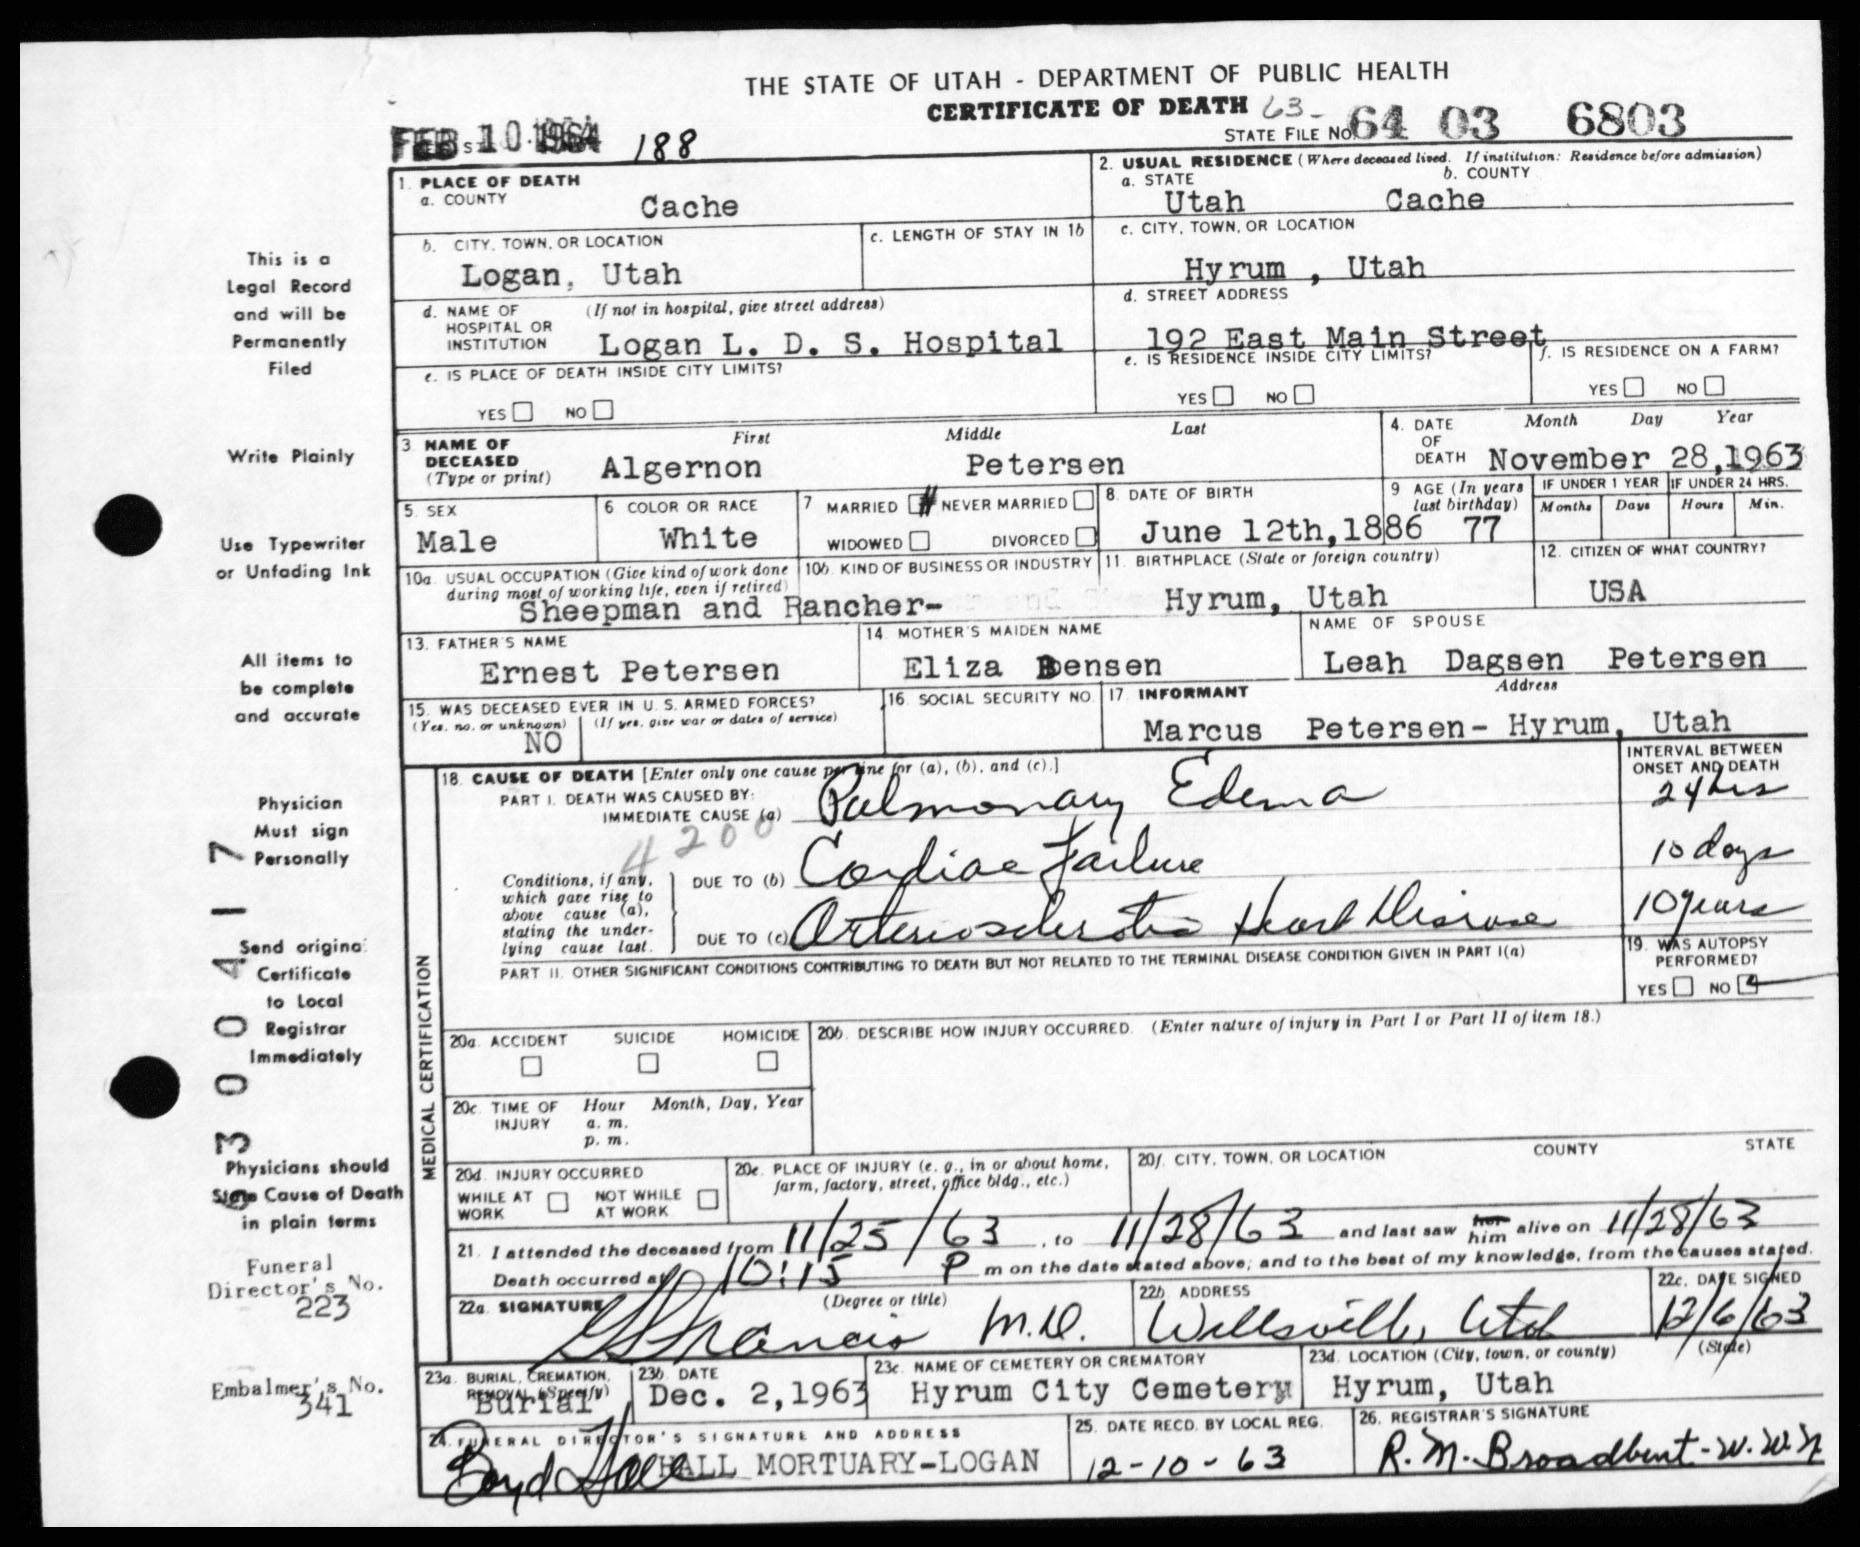 THE STATE OF UTAH - DEPARTMENT OF PUBLIC HEALTH
CERTIFICATE OF DEATH 63-
STATE FILE NO. 64 03 6803
FEB 10 1964 188
1. PLACE OF DEATH
a. COUNTY
Cache
2. USUAL RESIDENCE (Where deceased lived. If institution: Residence before admission)
a. STATE b. COUNTY
Utah Cache
b. CITY, TOWN, OR LOCATION
Logan, Utah
c. LENGTH OF STAY IN 1b
c. CITY, TOWN, OR LOCATION
Hyrum , Utah
d. NAME OF HOSPITAL OR INSTITUTION (If not in hospital, give street address)
Logan L. D. S. Hospital
d. STREET ADDRESS
192 East Main Street
e. IS PLACE OF DEATH INSIDE CITY LIMITS?
YES NO
e. IS RESIDENCE INSIDE CITY LIMITS?
YES NO
f. IS RESIDENCE ON A FARM?
YES NO
3 NAME OF DECEASED (Type or print)
First Middle Last
Algernon Petersen
4. DATE OF DEATH Month Day Year
November 28,1963
5. SEX
Male
6 COLOR OR RACE
White
7 MARRIED NEVER MARRIED
WIDOWED DIVORCED
8. DATE OF BIRTH
June 12th,1886
9 AGE (In years last birthday)
77
IF UNDER 1 YEAR IF UNDER 24 HRS.
Months Days Hours Min.
10a. USUAL OCCUPATION (Give kind of work done during most of working life, even if retired)
Sheepman and Rancher-
10b. KIND OF BUSINESS OR INDUSTRY
11. BIRTHPLACE (State or foreign country)
Hyrum, Utah
12. CITIZEN OF WHAT COUNTRY?
USA
13. FATHER'S NAME
Ernest Petersen
14. MOTHER'S MAIDEN NAME
Eliza Bensen
NAME OF SPOUSE
Leah Dagsen Petersen
15. WAS DECEASED EVER IN U.S. ARMED FORCES?
(Yes, no, or unknown) (If yes, give war or dates of service)
NO
16. SOCIAL SECURITY NO.
17. INFORMANT Address
Marcus Petersen- Hyrum, Utah
MEDICAL CERTIFICATION
18. CAUSE OF DEATH [Enter only one cause per line for (a), (b), and (c).]
INTERVAL BETWEEN ONSET AND DEATH
PART I. DEATH WAS CAUSED BY:
IMMEDIATE CAUSE (a) Pulmonary Edema 24 hrs
4200
Conditions, if any, which gave rise to above cause (a), stating the underlying cause last.
DUE TO (b) Cardiac Failure 10 days
DUE TO (c) Arteriosclerotic Heart Disease 10 years
PART II. OTHER SIGNIFICANT CONDITIONS CONTRIBUTING TO DEATH BUT NOT RELATED TO THE TERMINAL DISEASE CONDITION GIVEN IN PART I(a)
19. WAS AUTOPSY PERFORMED?
YES NO
20a. ACCIDENT SUICIDE HOMICIDE
20b. DESCRIBE HOW INJURY OCCURRED. (Enter nature of injury in Part I or Part II of item 18.)
20c. TIME OF INJURY Hour Month, Day, Year
a. m.
p. m.
20d. INJURY OCCURRED
WHILE AT WORK NOT WHILE AT WORK
20e. PLACE OF INJURY (e. g., in or about home, farm, factory, street, office bldg., etc.)
20f. CITY, TOWN, OR LOCATION COUNTY STATE
21. I attended the deceased from 11/25/63, to 11/28/63 and last saw her him alive on 11/28/63
Death occurred at 10:15 P m on the date stated above; and to the best of my knowledge, from the causes stated.
22a. SIGNATURE (Degree or title)
Francis M.D.
22b. ADDRESS
Wellsville, Utah
22c. DATE SIGNED
12/6/63
23a. BURIAL, CREMATION, REMOVAL (Specify)
Burial
23b. DATE
Dec. 2,1963
23c. NAME OF CEMETERY OR CREMATORY
Hyrum City Cemetery
23d. LOCATION (City, town, or county) (State)
Hyrum, Utah
24. FUNERAL DIRECTOR'S SIGNATURE AND ADDRESS
Boyd Hall HALL MORTUARY-LOGAN
25. DATE RECD. BY LOCAL REG.
12-10-63
26. REGISTRAR'S SIGNATURE
R. M. Broadbent-
This is a
Legal Record
and will be
Permanently
Filed
Write Plainly
Use Typewriter
or Unfading Ink
All items to
be complete
and accurate
Physician
Must sign
Personally
Send original
Certificate
to Local
Registrar
Immediately
Physicians should
State Cause of Death
in plain terms
Funeral
Director's No.
223
Embalmer's No.
341